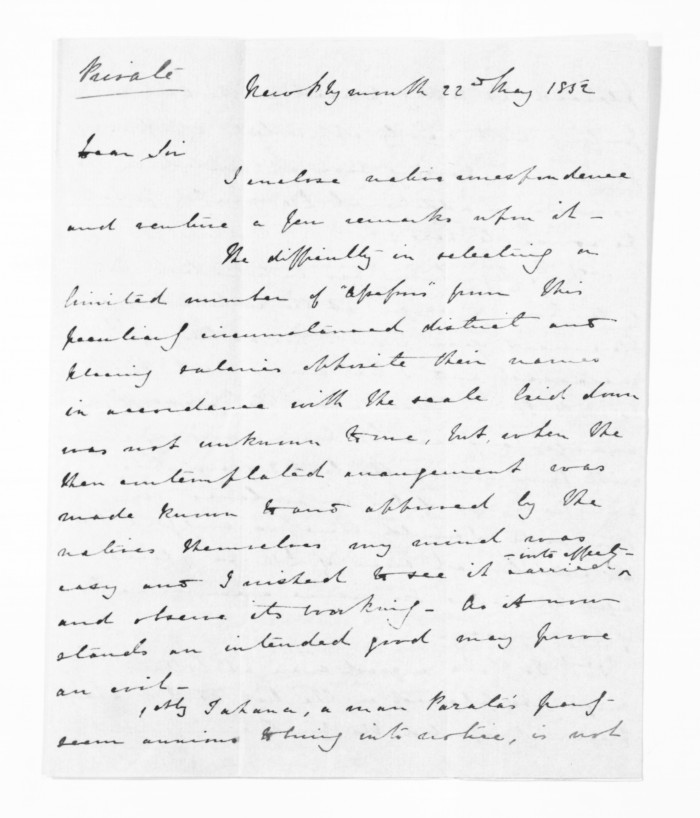 Private
New Plymouth 22nd May 1852
Dear Sir
I enclose native correspondence
and venture a few remarks upon it -
The difficulty in selecting a
limited number of "Assessors" from this
peculiarly circumstanced district and
placing salaries opposite their names
in accordance with the scale laid down
was not unknown to me, but, when the
then contemplated arrangement was
made known to and approved by the
natives themselves my mind was
easy and I wished to see it carried -into effect-
and observe its working - As it now
stands an intended good may prove
an evil -
Tahana, a man Party
seem anxious to bring into notice, is not